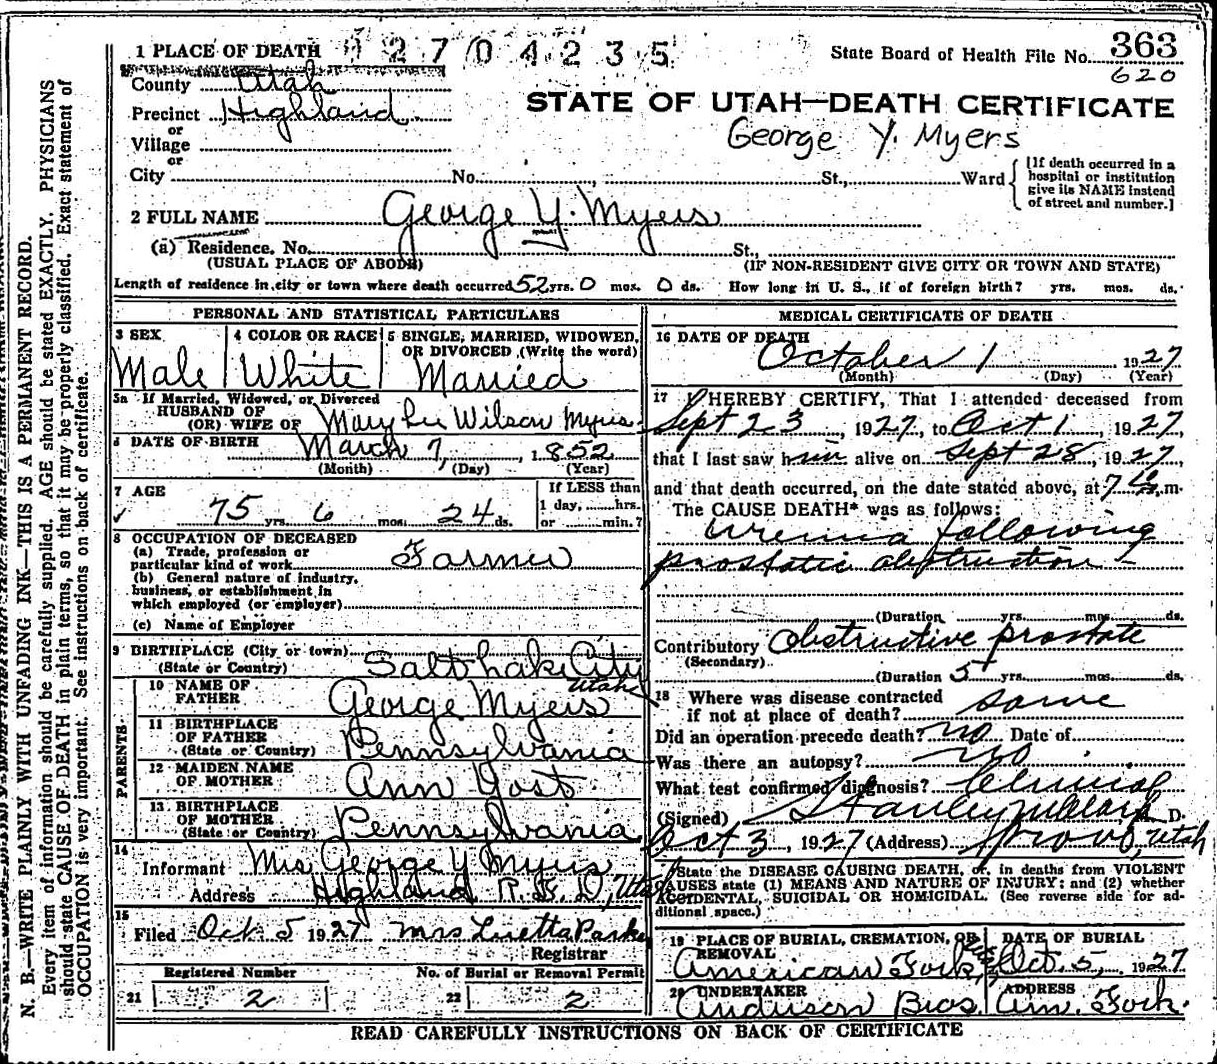 N. B.—WRITE PLAINLY WITH UNFADING INK—THIS IS A PERMANENT RECORD.
Every item of information should be carefully supplied. AGE should be stated EXACTLY. PHYSICIANS
should state CAUSE OF DEATH in plain terms, so that it may be properly classified. Exact statement of
OCCUPATION is very important. See instructions on back of certificate.
1 PLACE OF DEATH 12704235 State Board of Health File No. 363
620
County Utah
Precinct Highland
STATE OF UTAH—DEATH CERTIFICATE
or
Village
George Y. Myers
or
City No. St., Ward
[If death occurred in a
hospital or institution
give its NAME instead
of street and number.]
2 FULL NAME George Y. Myers
(a) Residence. No. St.,
(USUAL PLACE OF ABODE) (IF NON-RESIDENT GIVE CITY OR TOWN AND STATE)
Length of residence in city or town where death occurred 52 yrs. 0 mos. 0 ds. How long in U. S., if of foreign birth? yrs. mos. ds.
PERSONAL AND STATISTICAL PARTICULARS
3 SEX 4 COLOR OR RACE 5 SINGLE, MARRIED, WIDOWED,
OR DIVORCED (Write the word)
Male White Married
5a If Married, Widowed, or Divorced
HUSBAND OF
(OR) WIFE OF Mary Wilson Myers
6 DATE OF BIRTH March 7, 1852
(Month) (Day) (Year)
7 AGE If LESS than
1 day, hrs.
75 yrs. 6 mos. 24 ds. or min.?
8 OCCUPATION OF DECEASED
(a) Trade, profession or
particular kind of work Farmer
(b) General nature of industry,
business, or establishment in
which employed (or employer)
(c) Name of Employer
9 BIRTHPLACE (City or town)
(State or Country) Salt Lake City
Utah
PARENTS
10 NAME OF
FATHER George Myers
11 BIRTHPLACE
OF FATHER
(State or Country) Pennsylvania
12 MAIDEN NAME
OF MOTHER Ann Yost
13 BIRTHPLACE
OF MOTHER
(State or Country) Pennsylvania
14
Informant Mrs George Y Myers
Address Highland R. F. D, Utah
15
Filed Oct 5 1927 Mrs Luetta Parker
Registrar
Registered Number No. of Burial or Removal Permit
21 2 22 2
MEDICAL CERTIFICATE OF DEATH
16 DATE OF DEATH
October 1 1927
(Month) (Day) (Year)
17 I HEREBY CERTIFY, That I attended deceased from
Sept 23, 1927, to Oct 1, 1927,
that I last saw him alive on Sept 28, 1927,
and that death occurred, on the date stated above, at 7 m.
The CAUSE DEATH* was as follows:
Uremia following
prostatic obstruction -
(Duration yrs. mos. ds.
Contributory Obstructive prostate
(Secondary)
(Duration 5 yrs. mos. ds.
18 Where was disease contracted
if not at place of death? same
Did an operation precede death? no Date of
Was there an autopsy? no
What test confirmed diagnosis? Clinical
(Signed) Stanley M. D.
Oct 3, 1927 (Address) Provo, Utah
*State the DISEASE CAUSING DEATH, or, in deaths from VIOLENT
CAUSES state (1) MEANS AND NATURE OF INJURY; and (2) whether
ACCIDENTAL, SUICIDAL OR HOMICIDAL. (See reverse side for ad-
ditional space.)
19 PLACE OF BURIAL, CREMATION, OR
REMOVAL
American Fork,
DATE OF BURIAL
Oct. 5, 1927
20 UNDERTAKER
Anderson Bros
ADDRESS
Am. Fork.
READ CAREFULLY INSTRUCTIONS ON BACK OF CERTIFICATE